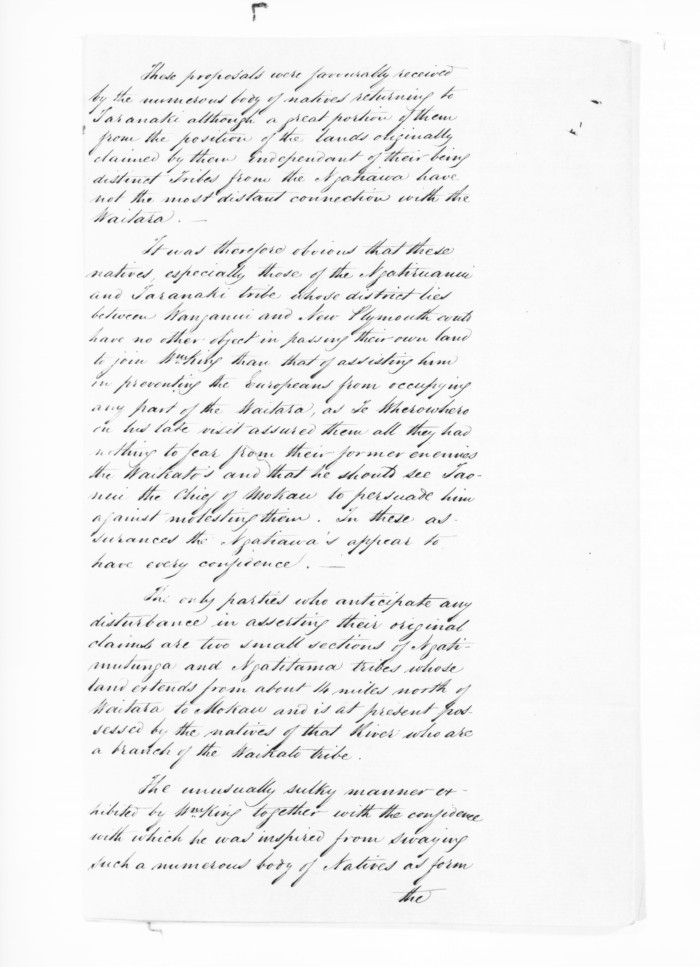 These proposals were favourally received
by the numerous body of natives returning to
Taranaki although a great portion of them
from the position of the lands originally
claimed by them independant of their being
distinct Tribes from the Ngatiawa have
not the most distant connection with the
Waitara. —
It was therefore obvious that these
natives, especially those of the Ngatiruanui
and Taranaki tribe whose district lies
between Wanganui and New Plymouth could
have no other object in passing their own land
to join Wm King than that of assisting him
in preventing the Europeans from occupying
any part of the Waitara, as Te Wherowhero
on his late visit assured them all they had
nothing to fear from their former enemies
the Waikato's and that he should see Tao-
nui the Chief of Mokau to persuade him
against molesting them. In these as-
surances the Ngatiawa's appear to
have every confidence. —
The only parties who anticipate any
disturbance in asserting their original
claims are two small sections of Ngati-
mutunga and Ngatitama tribes whose
land extends from about 14 miles north of
Waitara to Mokau and is at present pos-
sessed by the natives of that River who are
a branch of the Waikato tribe.
The unusually sulky manner ex-
hibited by Wm King together with the confidence
with which he was inspired from swaying
such a numerous body of Natives as form
the